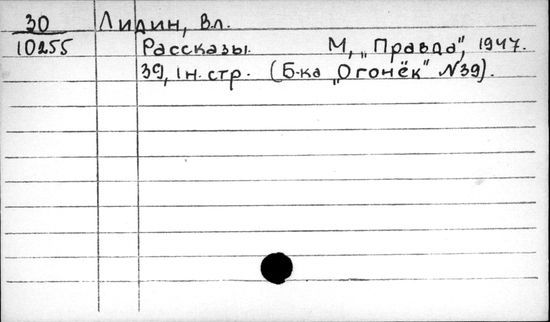 30 Лидин, Вл.
10255 Рассказы. М, „Правда", 1947.
39, 1н. стр. (Б-ка „Огонёк" №39).